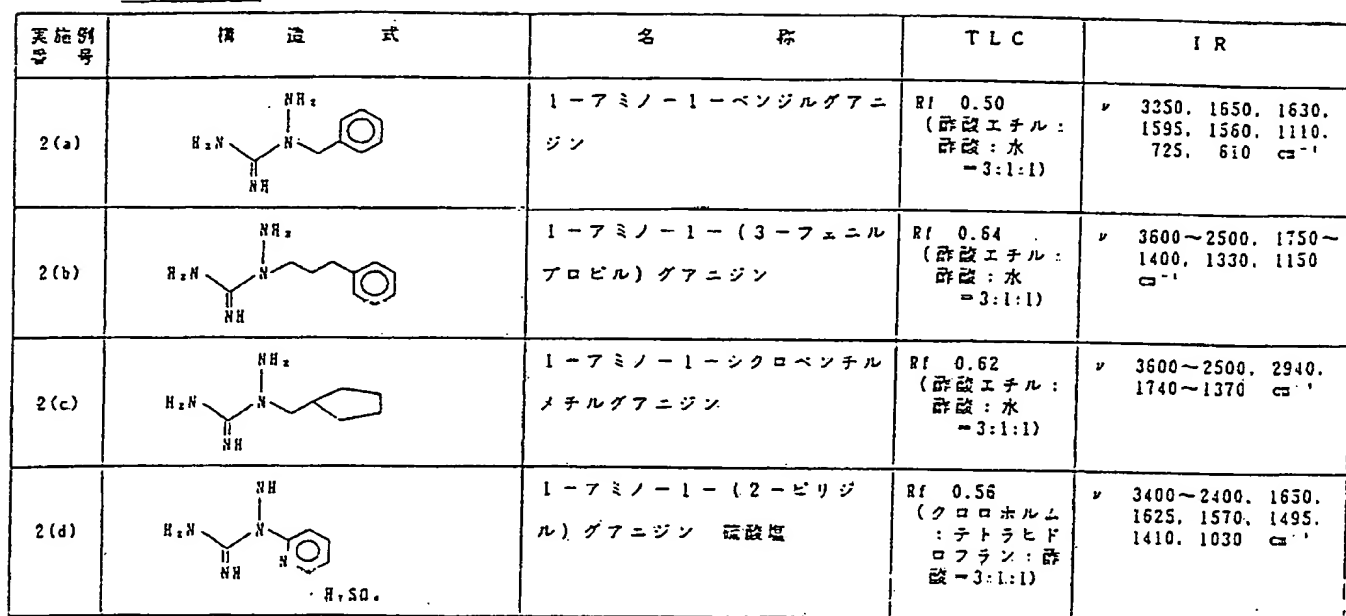 実施例
番 号
構 造 式
名 称
TLC
IR
2(a)
NH₂
H₂N
N
NH
1-アミノ-1-ベンジルグアニ
ジン
Rf 0.50
(酢酸エチル:
酢酸:水
=3:1:1)
ν 3250, 1650, 1630,
1595, 1560, 1110,
725, 610 cm⁻¹
2(b)
NH₂
H₂N
N
NH
1-アミノ-1-(3-フェニル
プロピル)グアニジン
Rf 0.64
(酢酸エチル:
酢酸:水
=3:1:1)
ν 3600~2500, 1750~
1400, 1330, 1150
cm⁻¹
2(c)
NH₂
H₂N
N
NH
1-アミノ-1-シクロペンチル
メチルグアニジン
Rf 0.62
(酢酸エチル:
酢酸:水
=3:1:1)
ν 3600~2500, 2940,
1740~1370 cm⁻¹
2(d)
NH
H₂N
N
N
NH
・H₂SO₄
1-アミノ-1-(2-ピリジ
ル)グアニジン 硫酸塩
Rf 0.56
(クロロホルム
:テトラヒド
ロフラン:酢
酸=3:1:1)
ν 3400~2400, 1650,
1625, 1570, 1495,
1410, 1030 cm⁻¹